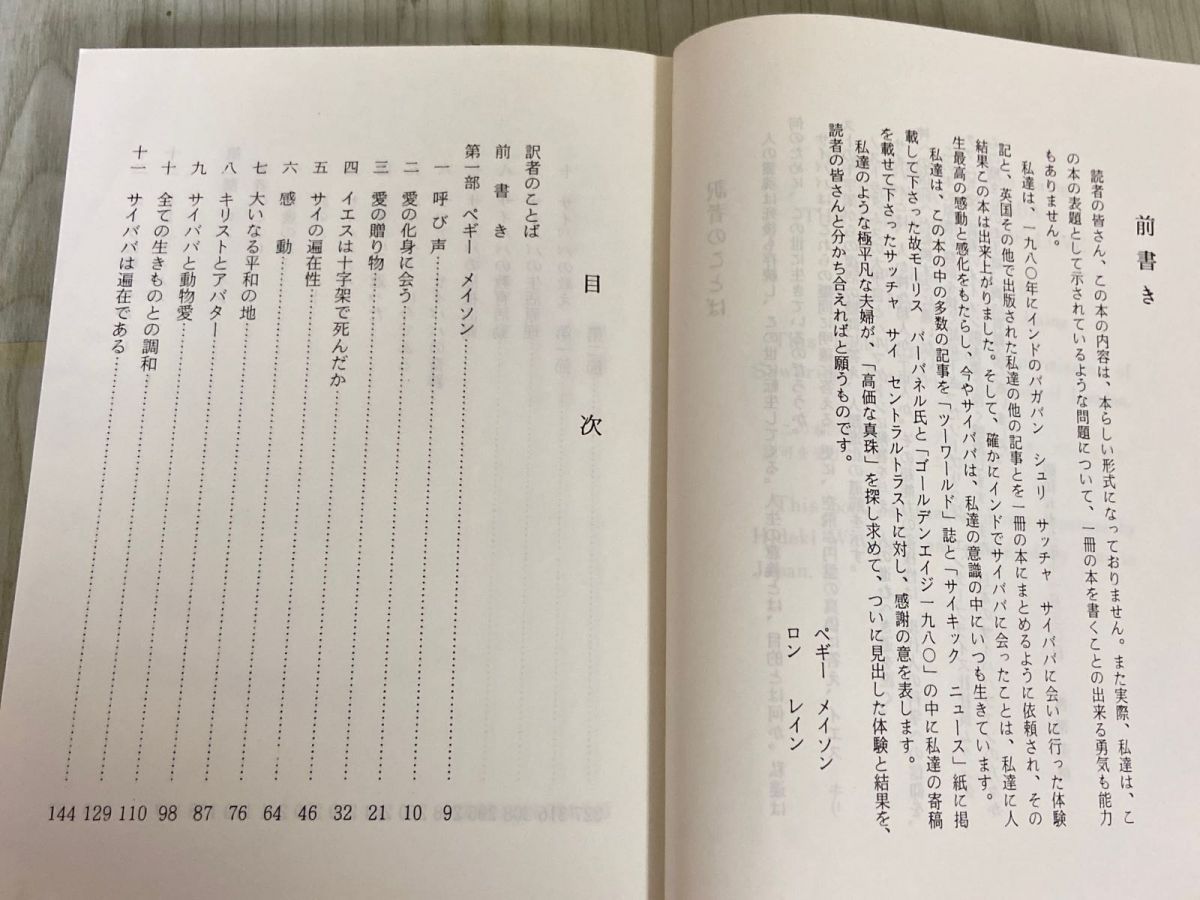 前書き
読者の皆さん、この本の内容は、本らしい形式になっておりません。また実際、私達は、こ
の本の表題として示されているような問題について、一冊の本を書くことの出来る勇気も能力
もありません。
私達は、一九八〇年にインドのバガバン シュリ サッチャ サイババに会いに行った体験
記と、英国その他で出版された私達の他の記事とを一冊の本にまとめるように依頼され、その
結果この本は出来上がりました。そして、確かにインドでサイババに会ったことは、私達に人
生最高の感動と感化をもたらし、今やサイババは、私達の意識の中にいつも生きています。
私達は、この本の中の多数の記事を「ツーワールド」誌と「サイキック ニュース」紙に掲
載して下さった故モーリス バーバネル氏と「ゴールデンエイジ一九八〇」の中に私達の寄稿
を載せて下さったサッチャ サイ セントラルトラストに対し、感謝の意を表します。
私達のような極平凡な夫婦が、「高価な真珠」を探し求めて、ついに見出した体験と結果を、
読者の皆さんと分かち合えればと願うものです。
ペギー メイソン
ロン レイン
目次
訳者のことば
前書き
第一部 ペギー メイソン 9
一 呼び声 10
二 愛の化身に会う 21
三 愛の贈り物 32
四 イエスは十字架で死んだか 46
五 サイの遍在性 64
六 感動 76
七 大いなる平和の地 87
八 キリストとアバター 98
九 サイババと動物愛 110
十 全ての生きものとの調和 129
十一 サイババは遍在である 144